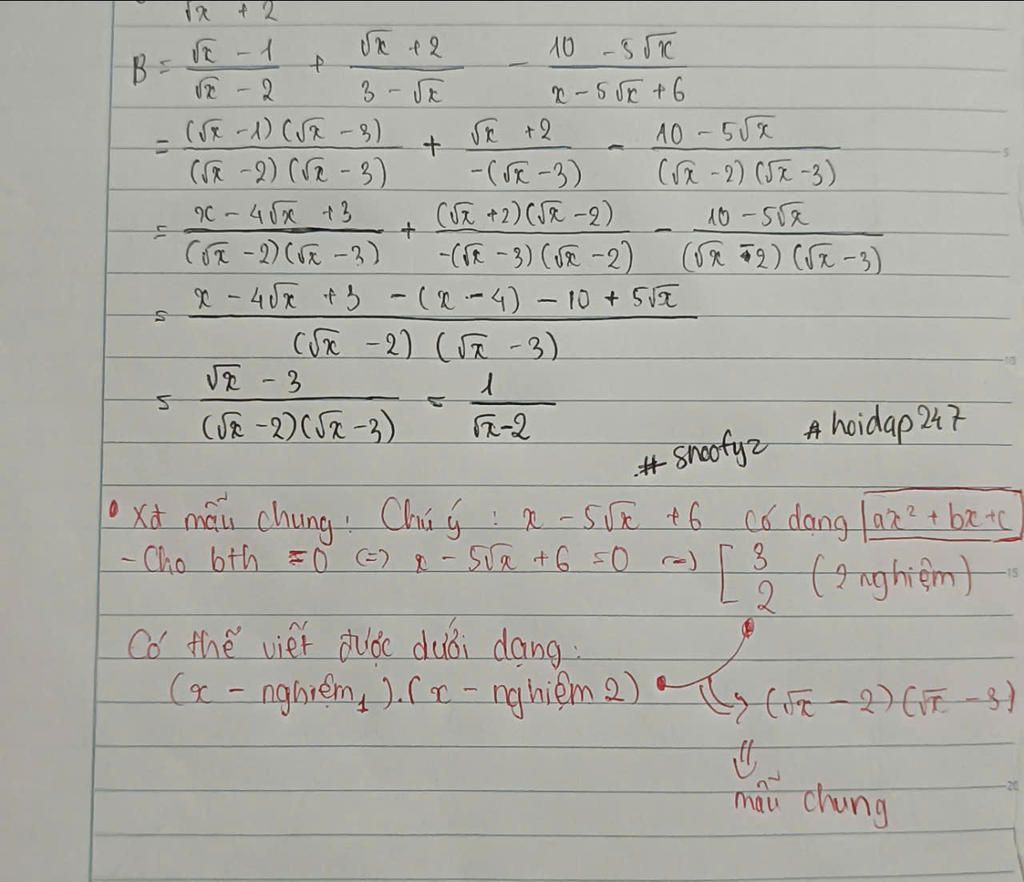 √x + 2
B = (√x - 1)/(√x - 2) + (√x + 2)/(3 - √x) - (10 - 5√x)/(x - 5√x + 6)
= ((√x - 1)(√x - 3))/((√x - 2)(√x - 3)) + (√x + 2)/(-(√x - 3)) - (10 - 5√x)/((√x - 2)(√x - 3))
= (x - 4√x + 3)/((√x - 2)(√x - 3)) + ((√x + 2)(√x - 2))/(-(√x - 3)(√x - 2)) - (10 - 5√x)/((√x - 2)(√x - 3))
= (x - 4√x + 3 - (x - 4) - 10 + 5√x)/((√x - 2)(√x - 3))
= (√x - 3)/((√x - 2)(√x - 3)) = 1/(√x - 2)
# snoofyz # hoidap247
• Xđ mẫu chung: Chú ý: x - 5√x + 6 có dạng ax² + bx + c
- Cho bth = 0 <=> x - 5√x + 6 = 0 => [ 3 2 (2 nghiệm)
Có thể viết được dưới dạng:
(x - nghiệm 1).(x - nghiệm 2) => (√x - 2)(√x - 3)
mẫu chung